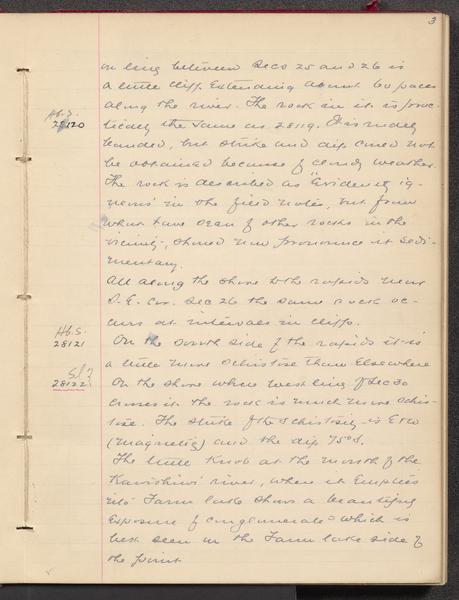 3
on line between Secs 25 and 26 is
a little cliff extending about 60 paces
along the river. The rock in it is prac-
Hb.S.
28120
tically the same as 28119. It is rudely
banded, but strike and dip could not
be obtained because of cloudy weather.
The rock is described as "Evidently ig-
neous" in the field notes, but from
what I have seen of other rocks in the
vicinity, should now pronounce it sedi-
mentary.
All along the shore to the rapids near
S.E. Cor. Sec 26 the same rock oc-
curs at intervals in cliffs.
Hb.S.
28121
On the south side of the rapids it is
a little more schistose than elsewhere
Sl?
28122
On the shore where west line of Sec 30
crosses it the rock is much more schis-
tose. The strike of the schistosity is E & W
(magnetic) and the dip 75° S.
The little knob at the mouth of the
Kawishiwi river, where it empties
into Farm lake shows a beautiful
exposure of conglomerate which is
best seen on the Farm lake side of
the point